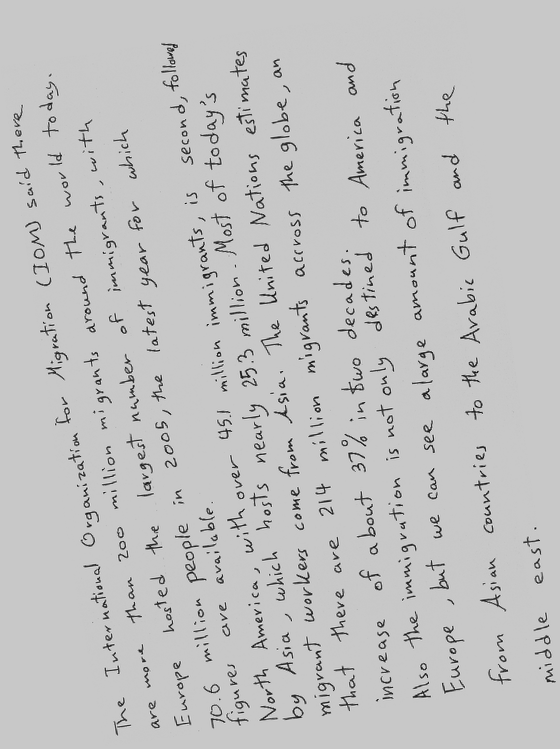 The International Organization for Migration (IOM) said there
are more than 200 million migrants around the world today.
Europe hosted the largest number of immigrants, with
70.6 million people in 2005, the latest year for which
figures are available.
North America, with over 45.1 million immigrants, is second, followed
by Asia, which hosts nearly 25.3 million. Most of today's
migrant workers come from Asia. The United Nations estimates
that there are 214 million migrants accross the globe, an
increase of about 37% in two decades.
Also the immigration is not only destined to America and
Europe, but we can see a large amount of immigration
from Asian countries to the Arabic Gulf and the
middle east.